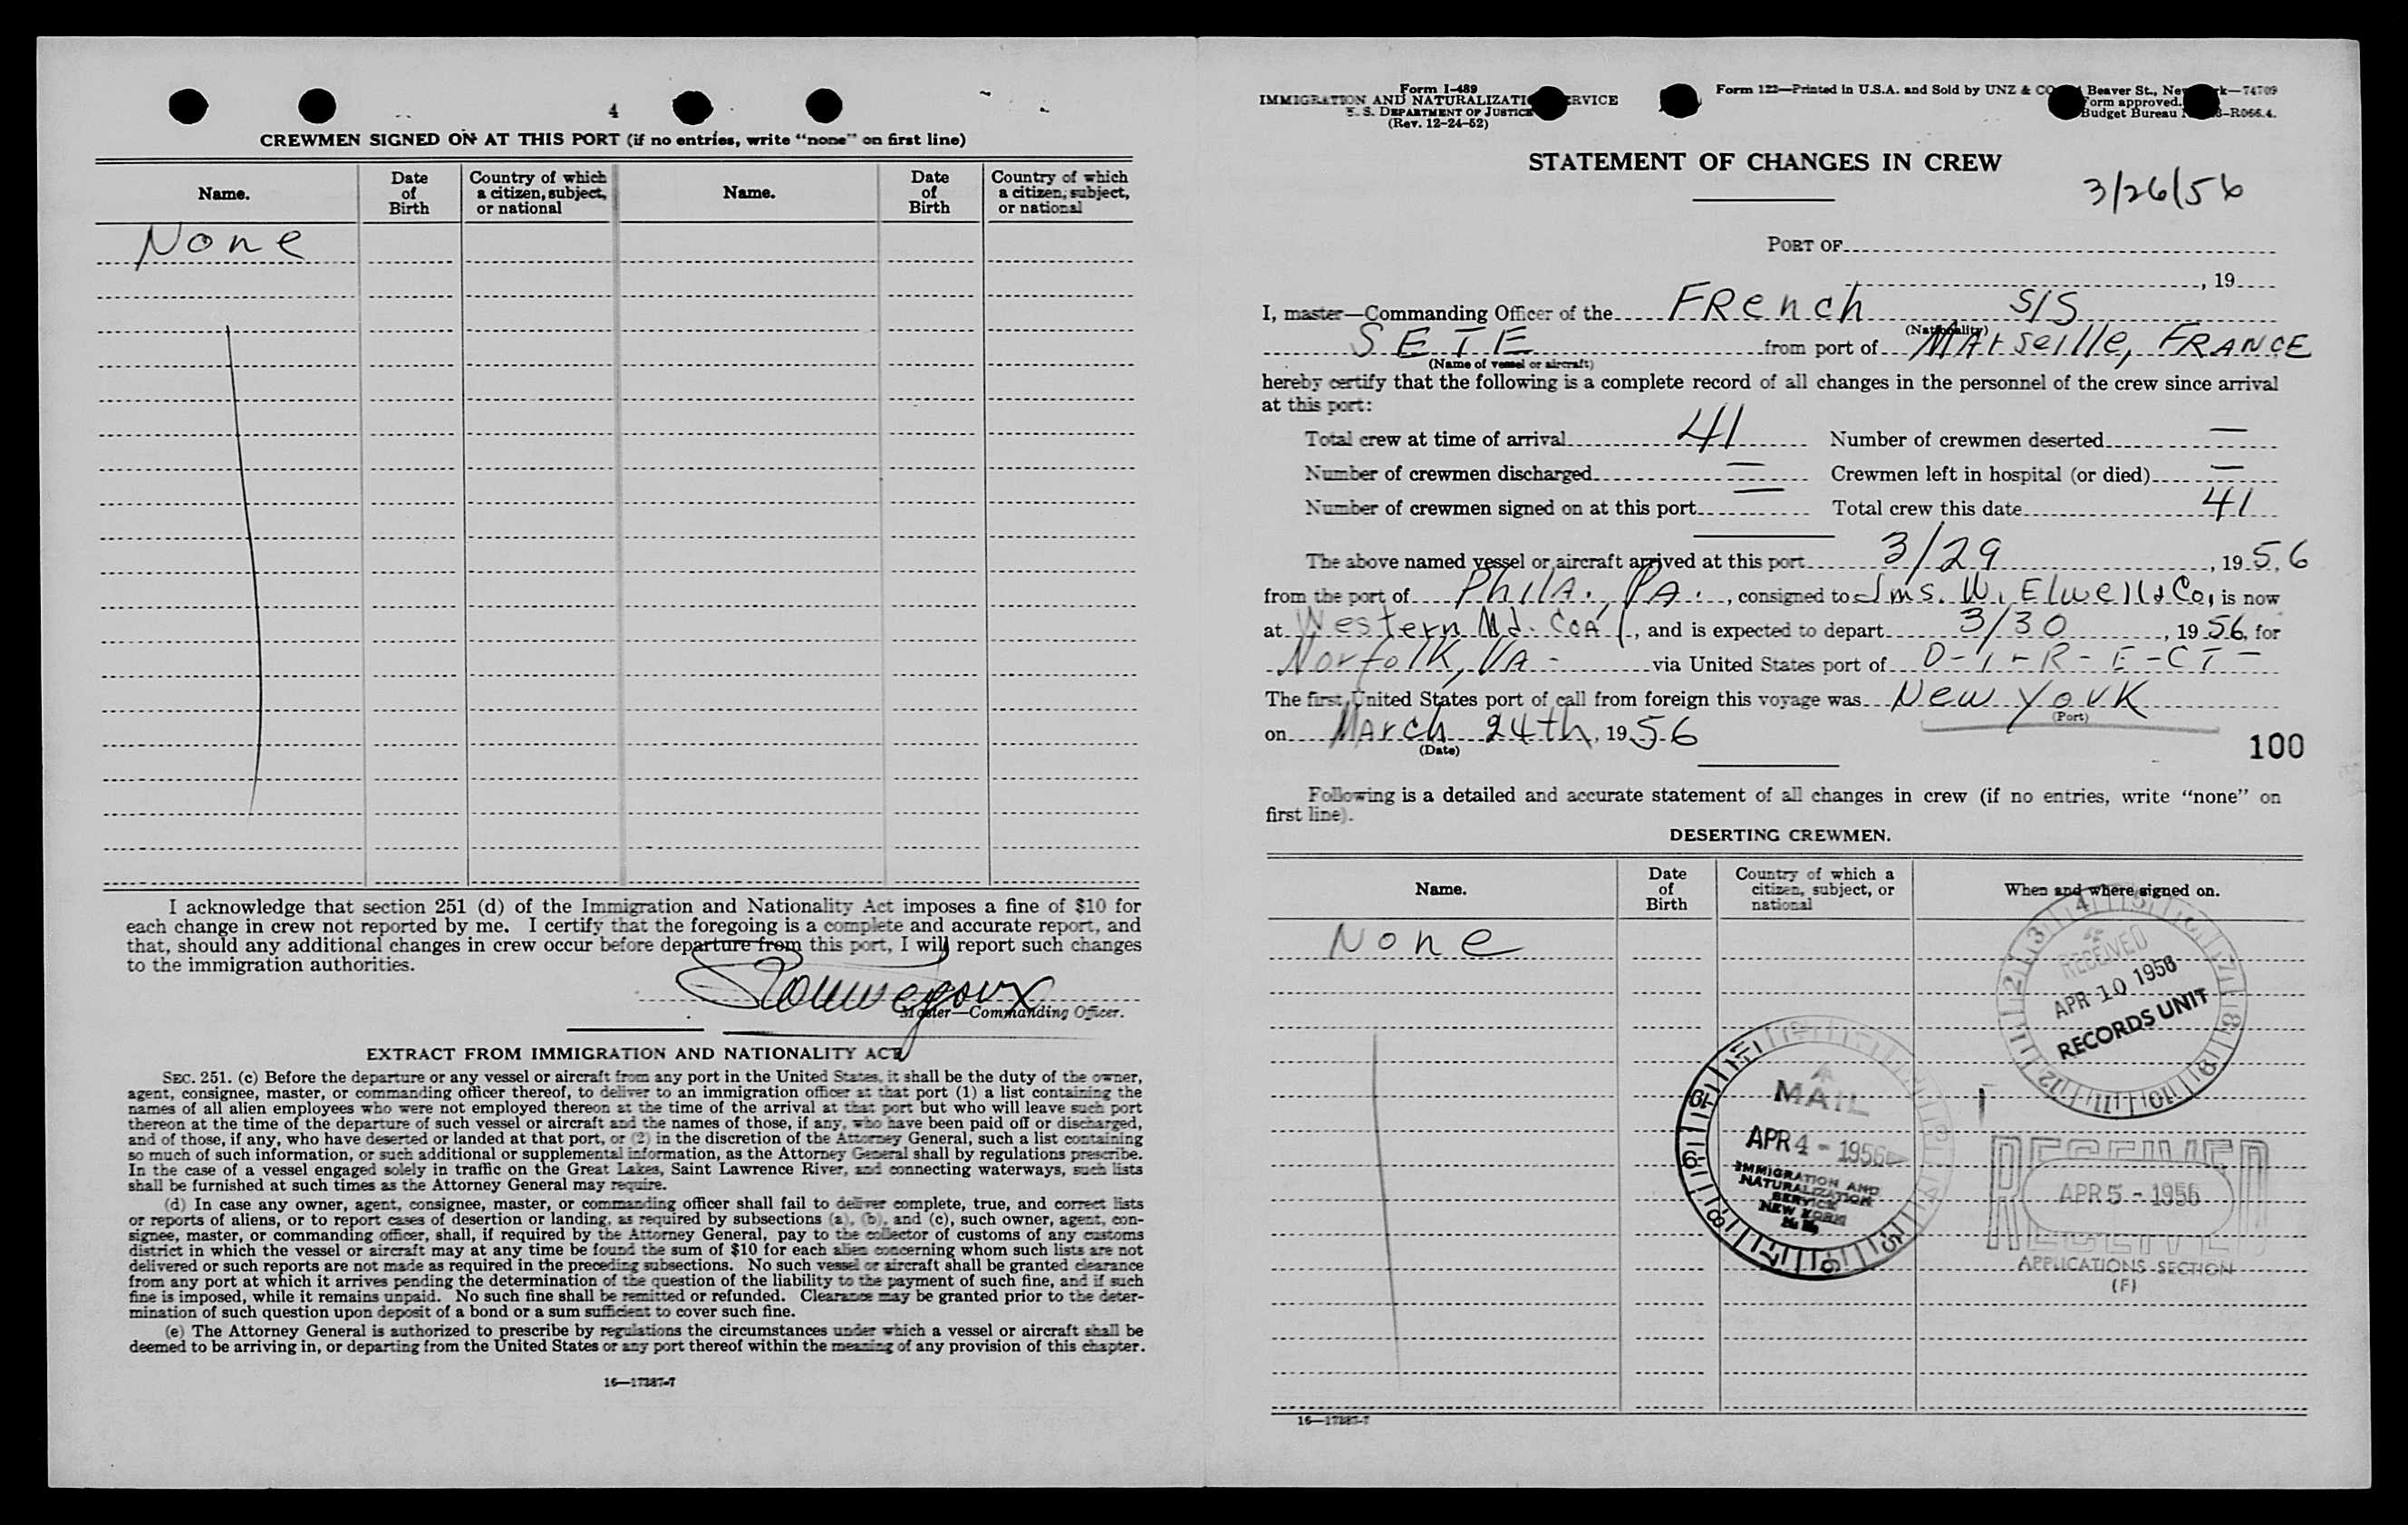 4
CREWMEN SIGNED ON AT THIS PORT (if no entries, write "none" on first line)
Name. Date of Birth Country of which a citizen, subject, or national Name. Date of Birth Country of which a citizen, subject, or national
None
I acknowledge that section 251 (d) of the Immigration and Nationality Act imposes a fine of $10 for
each change in crew not reported by me. I certify that the foregoing is a complete and accurate report, and
that, should any additional changes in crew occur before departure from this port, I will report such changes
to the immigration authorities.
Master—Commanding Officer.
EXTRACT FROM IMMIGRATION AND NATIONALITY ACT
SEC. 251. (c) Before the departure or any vessel or aircraft from any port in the United States, it shall be the duty of the owner,
agent, consignee, master, or commanding officer thereof, to deliver to an immigration officer at that port (1) a list containing the
names of all alien employees who were not employed thereon at the time of the arrival at that port but who will leave such port
thereon at the time of the departure of such vessel or aircraft and the names of those, if any, who have been paid off or discharged,
and of those, if any, who have deserted or landed at that port, or (2) in the discretion of the Attorney General, such a list containing
so much of such information, or such additional or supplemental information, as the Attorney General shall by regulations prescribe.
In the case of a vessel engaged solely in traffic on the Great Lakes, Saint Lawrence River, and connecting waterways, such lists
shall be furnished at such times as the Attorney General may require.
(d) In case any owner, agent, consignee, master, or commanding officer shall fail to deliver complete, true, and correct lists
or reports of aliens, or to report cases of desertion or landing, as required by subsections (a), (b), and (c), such owner, agent, con-
signee, master, or commanding officer, shall, if required by the Attorney General, pay to the collector of customs of any customs
district in which the vessel or aircraft may at any time be found the sum of $10 for each alien concerning whom such lists are not
delivered or such reports are not made as required in the preceding subsections. No such vessel or aircraft shall be granted clearance
from any port at which it arrives pending the determination of the question of the liability to the payment of such fine, and if such
fine is imposed, while it remains unpaid. No such fine shall be remitted or refunded. Clearance may be granted prior to the deter-
mination of such question upon deposit of a bond or a sum sufficient to cover such fine.
(e) The Attorney General is authorized to prescribe by regulations the circumstances under which a vessel or aircraft shall be
deemed to be arriving in, or departing from the United States or any port thereof within the meaning of any provision of this chapter.
16—17387-7
Form I-489
IMMIGRATION AND NATURALIZATI RVICE
U. S. DEPARTMENT OF JUSTICE
(Rev. 12-24-52)
Form 122—Printed in U.S.A. and Sold by UNZ & CO Beaver St., Ne k—74709
orm approved.
Budget Bureau -R066.4.
STATEMENT OF CHANGES IN CREW
3/26/56
PORT OF
, 19
I, master—Commanding Officer of the FRench S/S
(Nationality)
SETE from port of MArseille, FRANCE
(Name of vessel or aircraft)
hereby certify that the following is a complete record of all changes in the personnel of the crew since arrival
at this port:
Total crew at time of arrival 41 Number of crewmen deserted —
Number of crewmen discharged — Crewmen left in hospital (or died) —
Number of crewmen signed on at this port — Total crew this date 41
The above named vessel or aircraft arrived at this port 3/29, 1956
from the port of PhilA., PA., consigned to Jms. W. Elwell & Co, is now
at Western Md. CoAl, and is expected to depart 3/30, 1956, for
Norfolk, VA- via United States port of D-I-R-E-CT-
The first United States port of call from foreign this voyage was New York
(Port)
on MArch 24th, 1956
(Date)
100
Following is a detailed and accurate statement of all changes in crew (if no entries, write "none" on
first line).
DESERTING CREWMEN.
Name. Date of Birth Country of which a citizen, subject, or national When and where signed on.
None
RECEIVED
APR 10 1956
RECORDS UNIT
MAIL
APR 4 - 1956
IMMIGRATION AND
NATURALIZATION
SERVICE
NEW YORK
RECEIVED
APR 5 - 1956
APPLICATIONS SECTION
(F)
16—17387-7